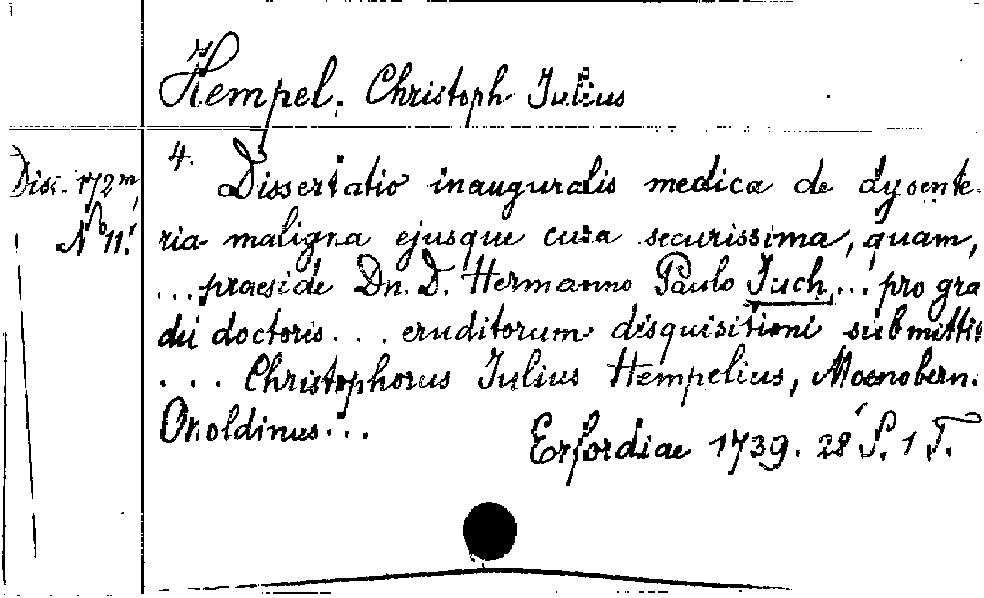 Hempel, Christoph Julius
Diss. 172 m,
No 11.
4.
Dissertatio inauguralis medica de dysente-
ria maligna ejusque cura securissima, quam,
... praeside Dn. D. Hermanno Paulo Juch ... pro gra
dū doctoris ... eruditorum disquisitioni submittit
.... Christophorus Julius Hempelius, Moenobern.
Onoldinus ...
Erfordiae 1739. 28 S. 1 T.